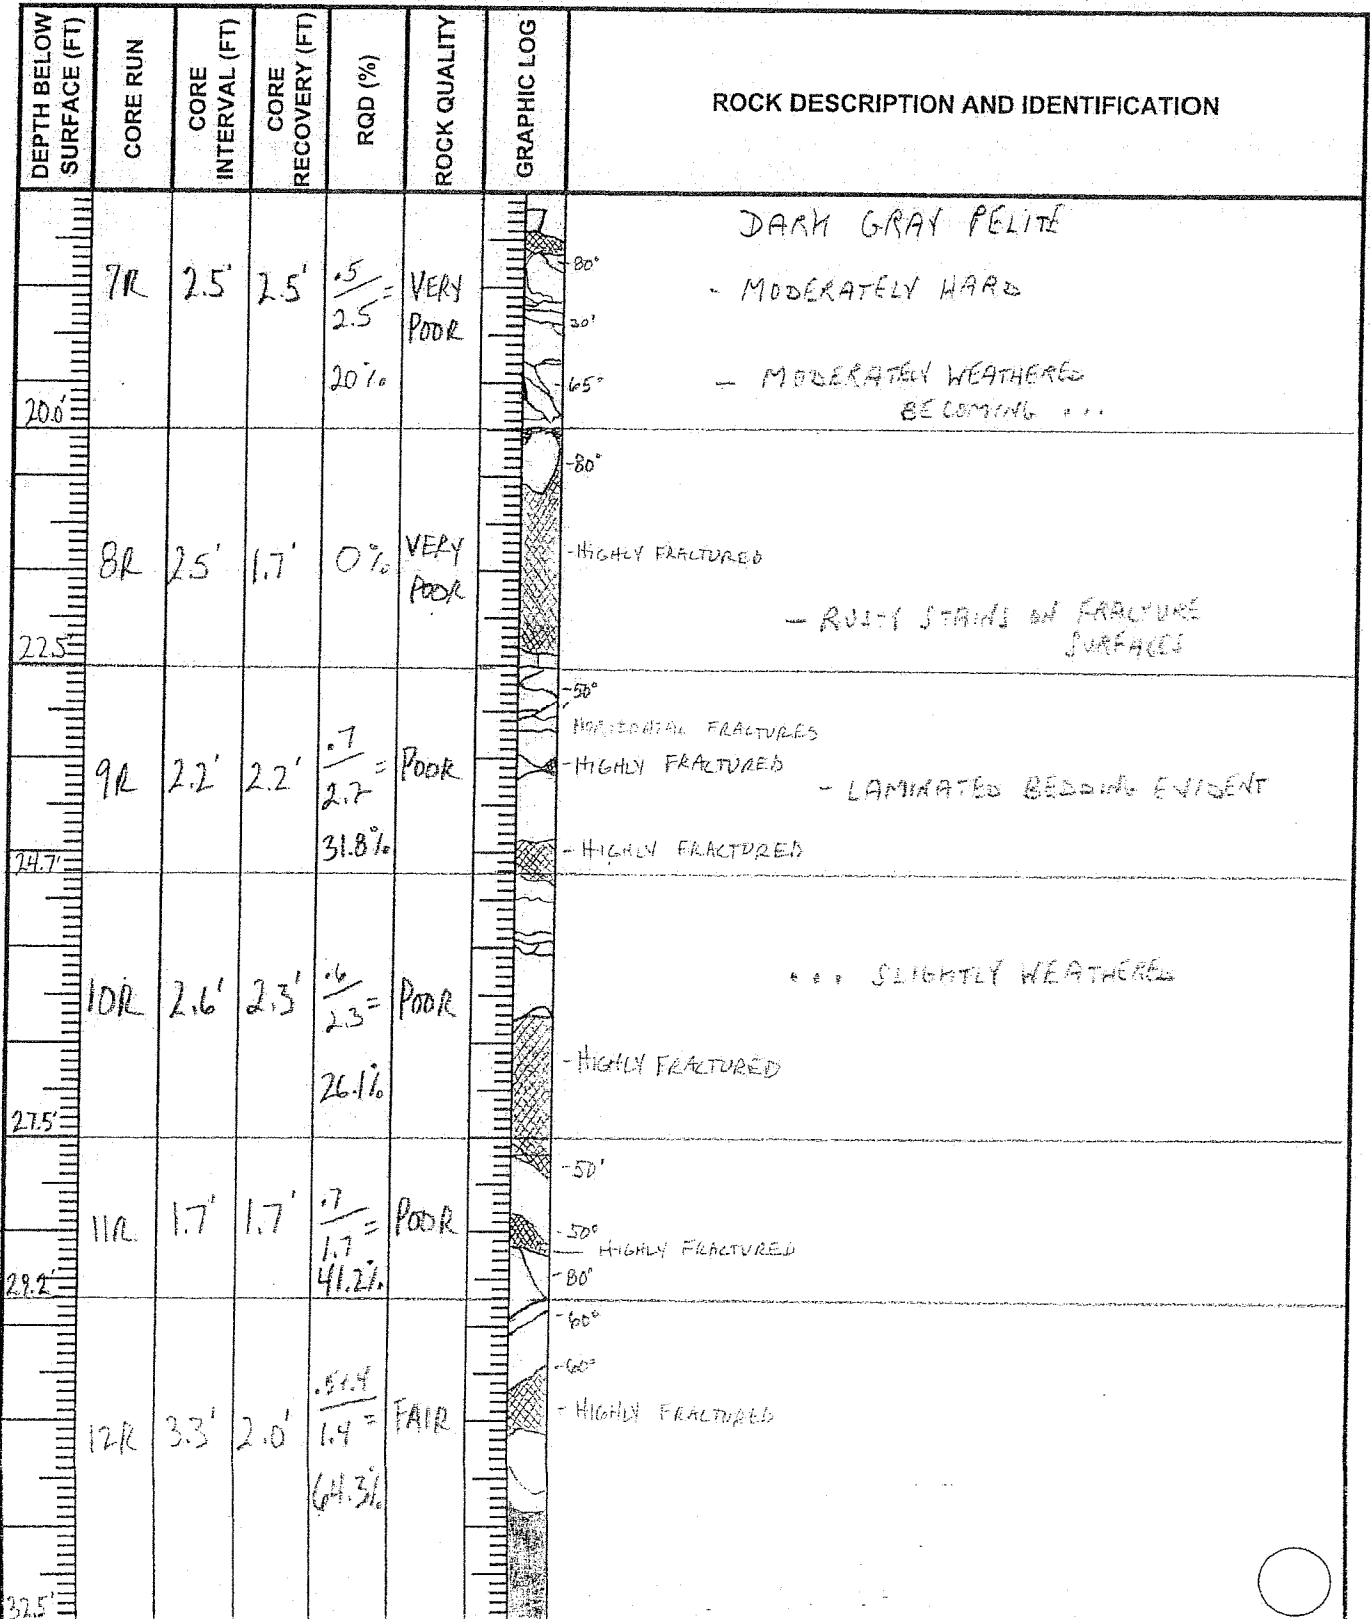 DEPTH BELOW
SURFACE (FT)
CORE RUN
CORE
INTERVAL (FT)
CORE
RECOVERY (FT)
RQD (%)
ROCK QUALITY
GRAPHIC LOG
ROCK DESCRIPTION AND IDENTIFICATION
7R 2.5' 2.5' .5 / 2.5 = VERY
POOR
20%
20.0'
-80°
30'
-65°
DARK GRAY PELITE
- MODERATELY HARD
- MODERATELY WEATHERED
BECOMING ...
8R 2.5' 1.7' 0% VERY
POOR
22.5'
-80°
-HIGHLY FRACTURED
- RUSTY STAINS ON FRACTURE
SURFACES
9R 2.2' 2.2' .7 / 2.2 = POOR
31.8%
24.7'
-50°
HORIZONTAL FRACTURES
-HIGHLY FRACTURED
- LAMINATED BEDDING EVIDENT
-HIGHLY FRACTURED
10R 2.6' 2.3' .6 / 2.3 = POOR
26.1%
27.5'
... SLIGHTLY WEATHERED
-HIGHLY FRACTURED
11R 1.7' 1.7' .7 / 1.7 = POOR
41.2%
29.2'
-50'
-50°
- HIGHLY FRACTURED
-80'
12R 3.3' 2.0' .5+.4 / 1.4 = FAIR
64.3%
32.5'
-60°
-60°
- HIGHLY FRACTURED